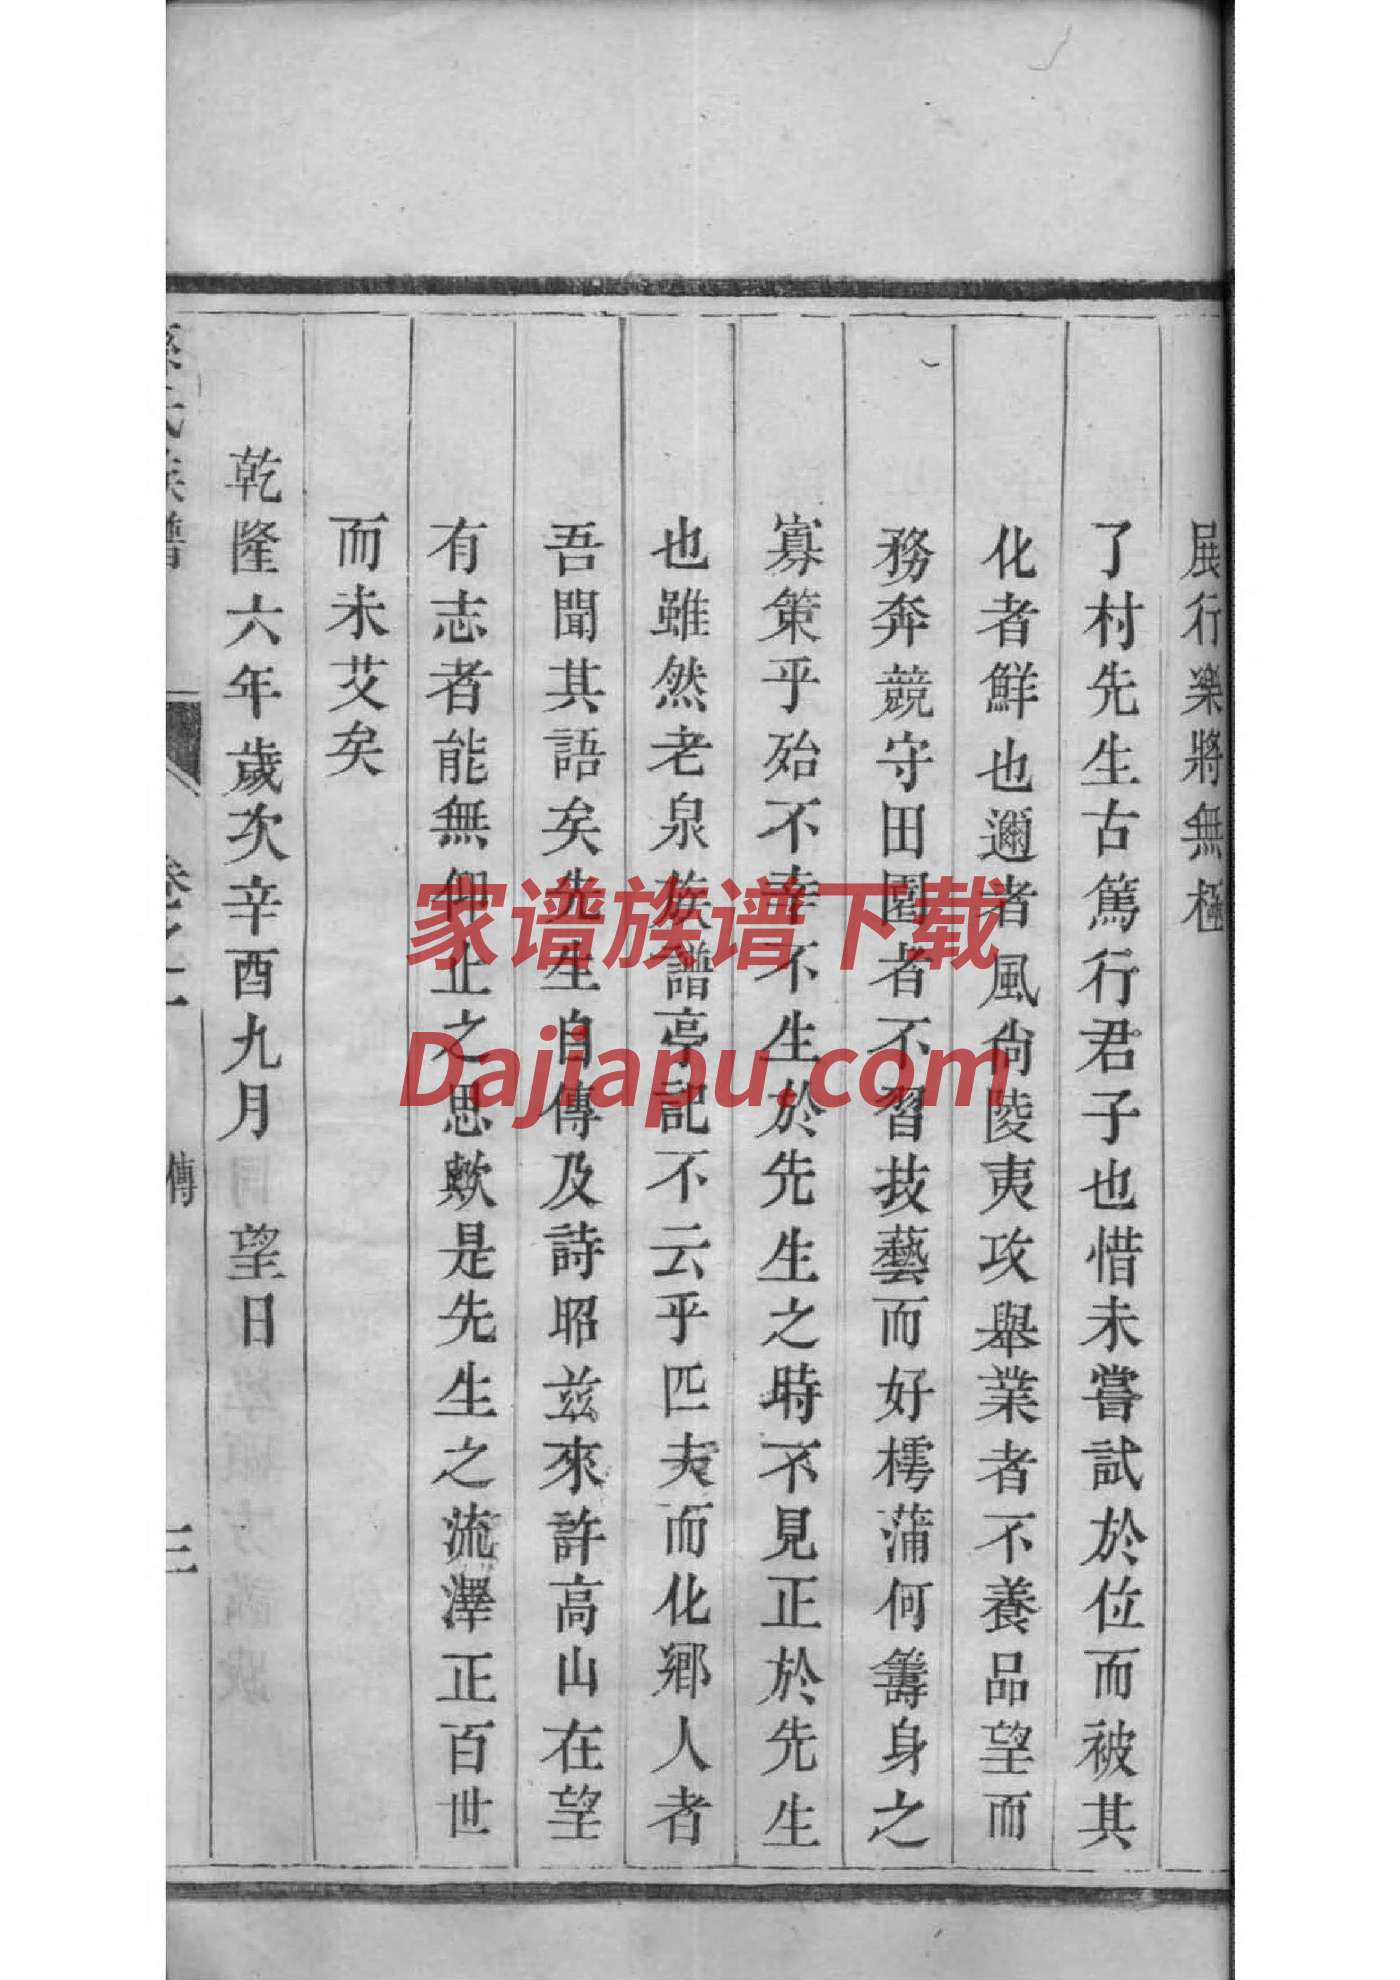 展行樂將無極
了村先生古篤行君子也惜未嘗試於位而被其
化者鮮也邇者風尙陵夷攻舉業者不養品望而
務奔競守田園者不習技藝而好樗蒲何籌身之
寡策乎殆不幸不生於先生之時不見正於先生
也雖然老泉族譜亭記不云乎匹夫而化鄉人者
吾聞其語矣先生自傳及詩昭兹來許高山在望
有志者能無仰止之思歟是先生之流澤正百世
而未艾矣
乾隆六年歲次辛酉九月 望日
氏族譜 卷之 傳 三
家谱族谱下载
Dajiapu.com